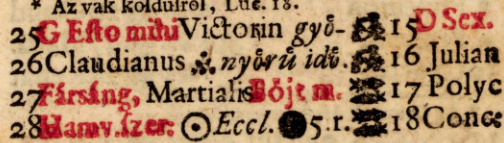 * Az vak koldusról, Luc. 18.
25 G Eſto mihi Victorin gyö- 15 D Sex.
26 Claudianus nyörü idö. 16 Julian
27 Fársáng, Martialis Böjt m. 17 Polyc
28 Hamv. ſzer. Eccl. 5. r. 18 Conce